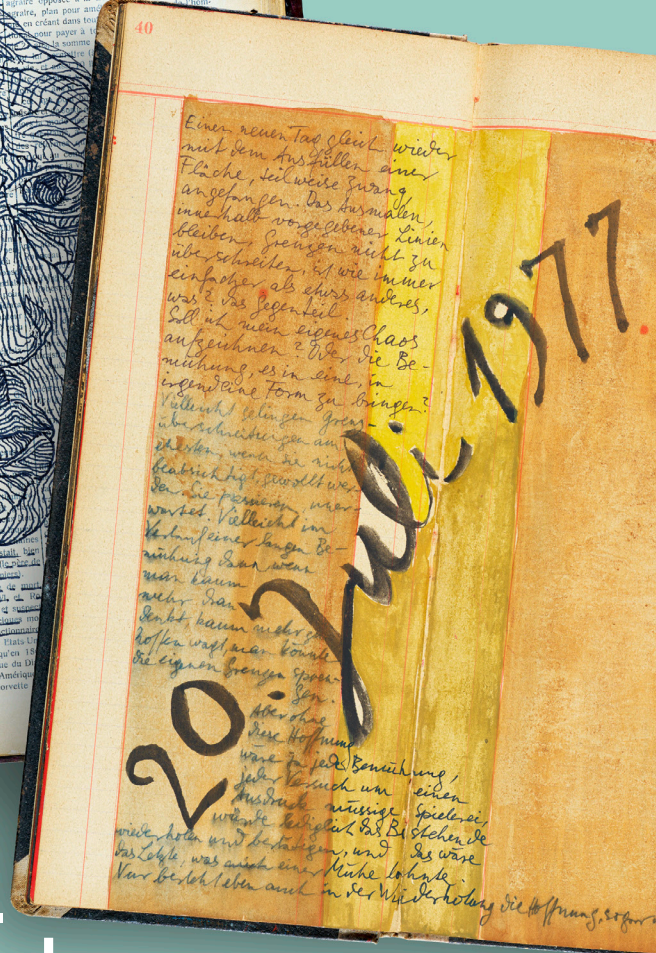 40
Einen neuen Tag gleich wieder
mit dem Ausfüllen einer
Fläche, teilweise zwang
angefangen. Das Ausmalen,
innerhalb vorgegebener Linien
bleiben, Grenzen nicht zu
überschreiten, ist wie immer
einfacher als etwas anderes,
was? Das Gegenteil.
Soll ich mein eigenes Chaos
aufzeichnen? Oder die Be-
mühung, es in eine, in
irgendeine Form zu bringen?
Vielleicht gelingen Grenz-
überschreitungen am
ehesten, wenn sie nicht
beabsichtigt, gewollt wer-
den. Sie passieren, uner-
wartet. Vielleicht im
Verlauf einer langen Be-
mühung dann, wenn
man kaum
mehr dran
denkt, kaum mehr zu
hoffen wagt, man könnte
die eigenen Grenzen spren-
gen.
Aber ohne
diese Hoffnung
wäre ja jede Bemühung,
jeder Versuch um einen
Ausdruck müssige Spielerei,
würde lediglich das Bestehende
wiederholen und bestätigen, und das wäre
das Letzte, was einer Mühe lohnte.
Nur besteht eben auch in der Wiederholung die Hoffnung, sogar
20. Juli 1977